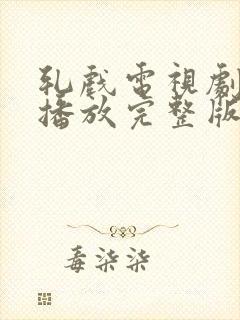 乳戲電視劇
播放完整版
毒柒柒